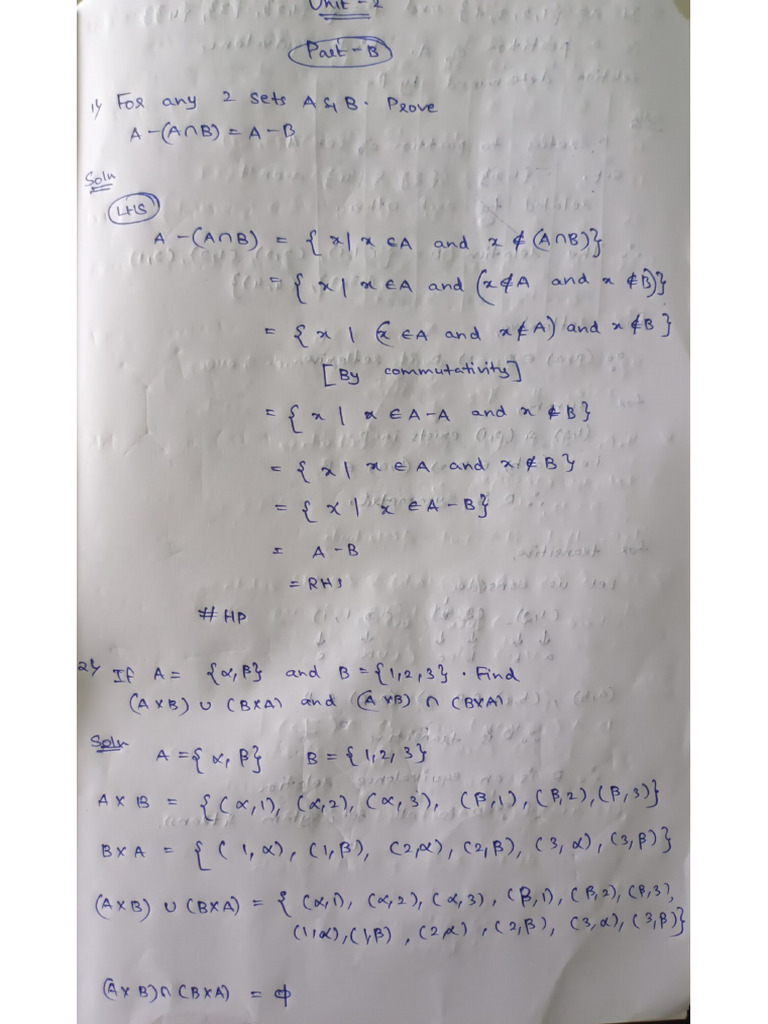 Unit - 2
Part - B
1) For any 2 sets A & B. Prove
A-(A∩B) = A-B
Soln
LHS
A-(A∩B) = { x | x ∈A and x ∉ (A∩B)}
= { x | x ∈A and (x∉A and x ∉B)}
= { x | (x ∈A and x∉A) and x ∉B }
[By commutativity]
= { x | x ∈ A-A and x ∉ B}
= { x | x ∈ A and x ∉ B }
= { x | x ∈ A-B}
= A-B
= RHS
# HP
2) If A = {α,β} and B = {1,2,3}. Find
(A×B) ∪ (B×A) and (A×B) ∩ (B×A)
Soln
A = {α, β} B = {1,2,3}
A×B = {(α,1), (α,2), (α,3), (β,1), (β,2), (β,3)}
B×A = { (1,α), (1,β), (2,α), (2,β), (3,α), (3,β)}
(A×B) ∪ (B×A) = { (α,1), (α,2), (α,3), (β,1), (β,2), (β,3),
(1,α), (1,β), (2,α), (2,β), (3,α), (3,β)}
(A×B)∩(B×A) = ϕ